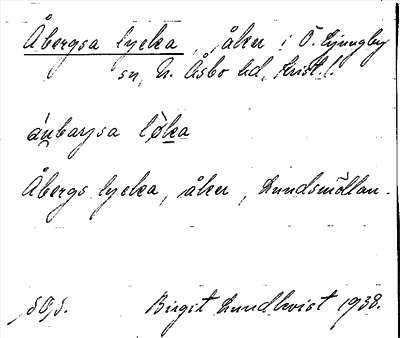 Åbergsa lycka, åker i Ö. Ljungby
sn, N. Åsbo hd, Krist. l.
lỳka
Åbergs lycka, åker, Lundsmöllan.
Birgit Lundkvist 1938.